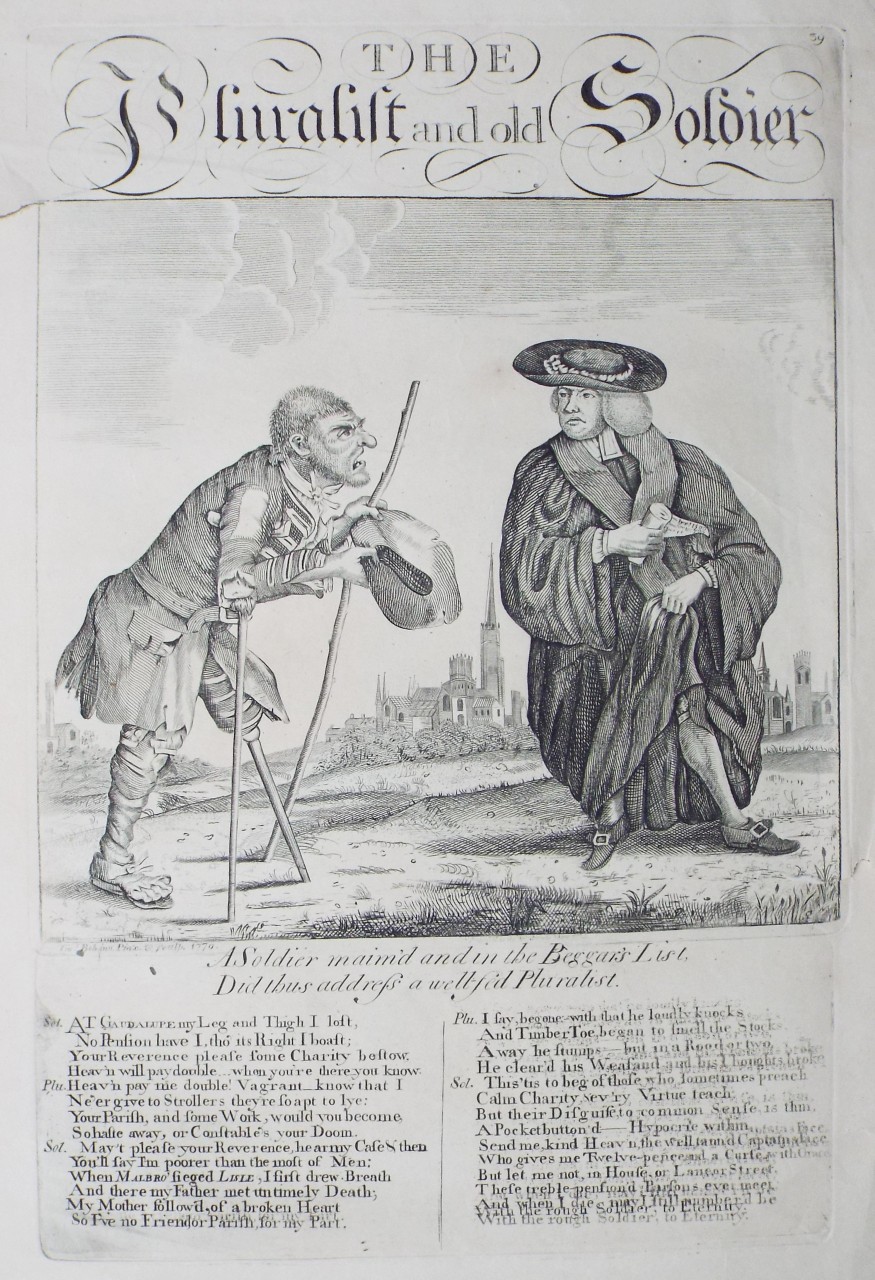 39
THE
Pluralist and old Soldier
1779
A Soldier maim'd and in the Beggars List,
Did thus address a well-fed Pluralist.
Sol. AT GAUDALUPE my Leg and Thigh I lost,
No Pension have I, tho' its Right I boast;
Your Reverence please some Charity bestow,
Heav'n will pay double when you're there you know.
Plu. Heav'n pay me double! Vagrant know that I
Ne'er give to Strollers they're so apt to lye:
Your Parish, and some Work, would you become,
So haste away, or Constable's your Doom.
Sol. May't please your Reverence, hear my Case & then
You'll say I'm poorer than the most of Men;
When MALBRO' sieged LISLE, I first drew Breath
And there my Father met untimely Death;
My Mother follow'd, of a broken Heart
So I've no Friend or Parish, for my Part.
Plu. I say, begone: with that he loudly knocks
And Timber Toe, began to smell the Stocks
Away he stumps but in a Rood or two
He clear'd his Weasand and his Thoughts broke
Sol. This 'tis to beg of those who sometimes preach
Calm Charity, & ev'ry Virtue teach;
But their Disguise, to common Sense is thin,
A Pocket button'd Hypocrie within,
Send me, kind Heav'n, the well tann'd Captain's face
Who gives me Twelve-pence and a Curse, with Grace
But let me not, in House, or Lane, or Street,
These treble-pension'd Parsons ever meet
And when I die, may I still number'd be
With the rough Soldier, to Eternity.